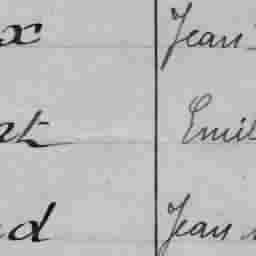 x Jean
at Emil
d Jean